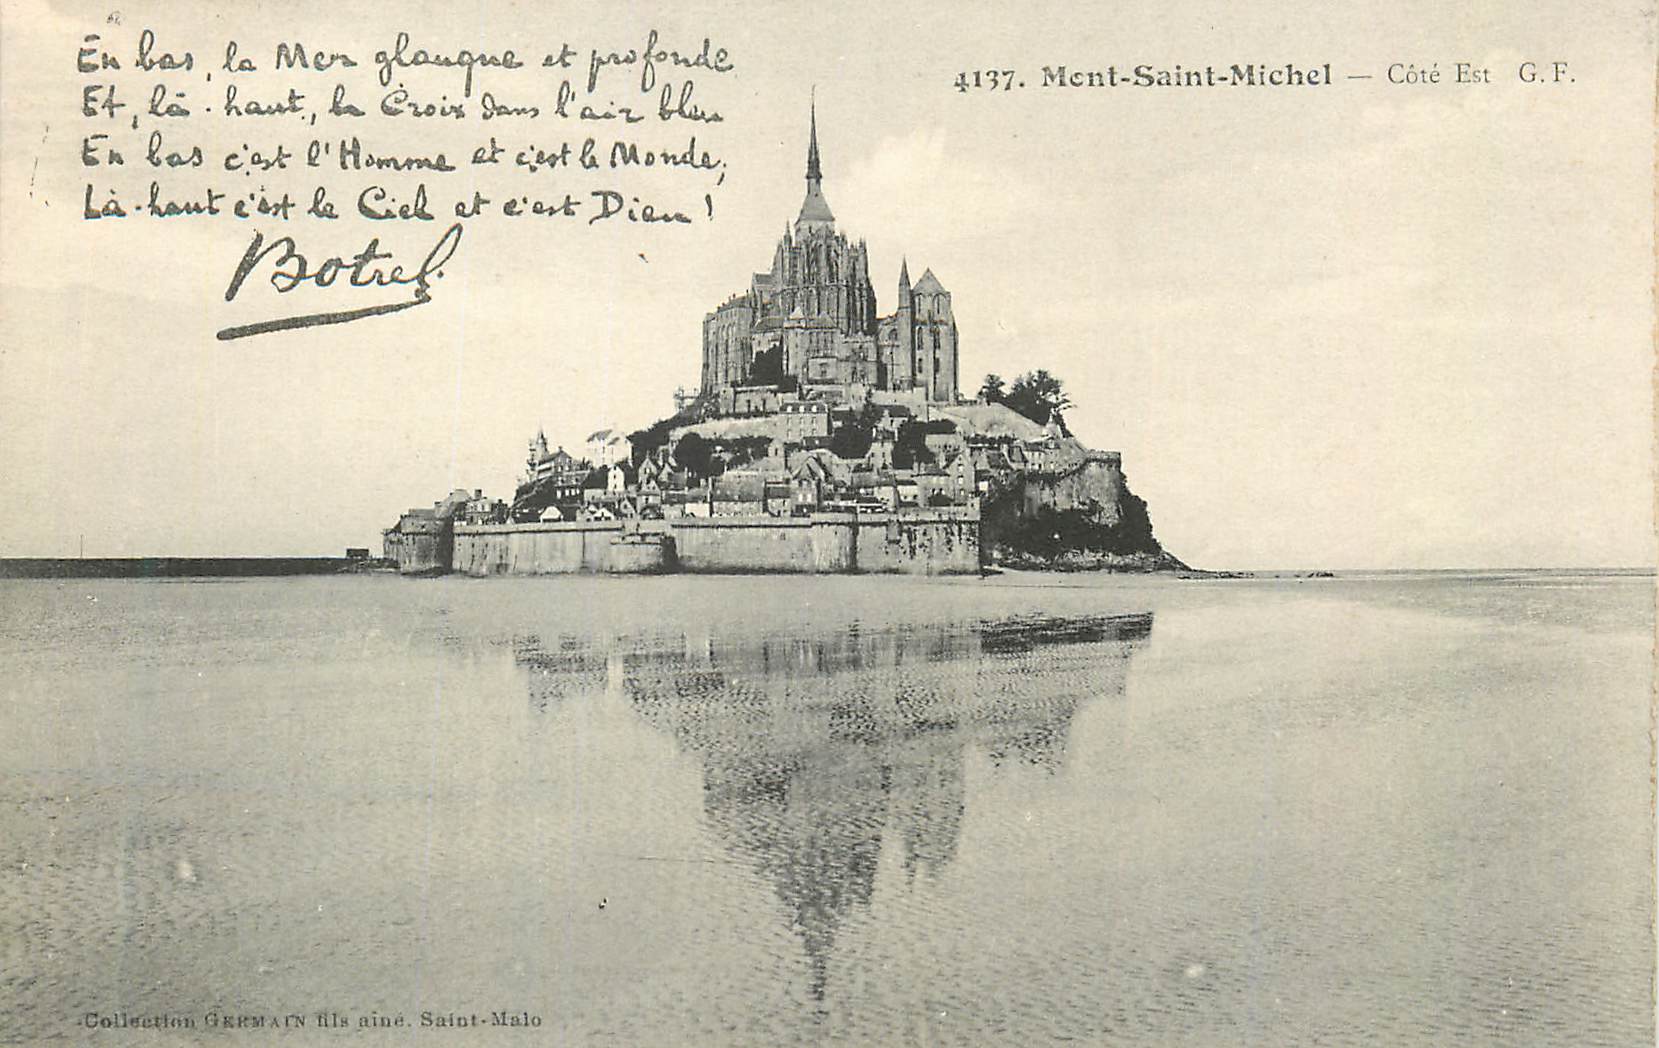 En bas, la Mer glauque et profonde
Et, là-haut, la Croix dans l'air bleu
En bas c'est l'Homme et c'est le Monde;
Là-haut c'est le Ciel et c'est Dieu !
Botrel.
4137. Mont-Saint-Michel — Côté Est G. F.
Collection GERMAIN fils aîné. Saint-Malo